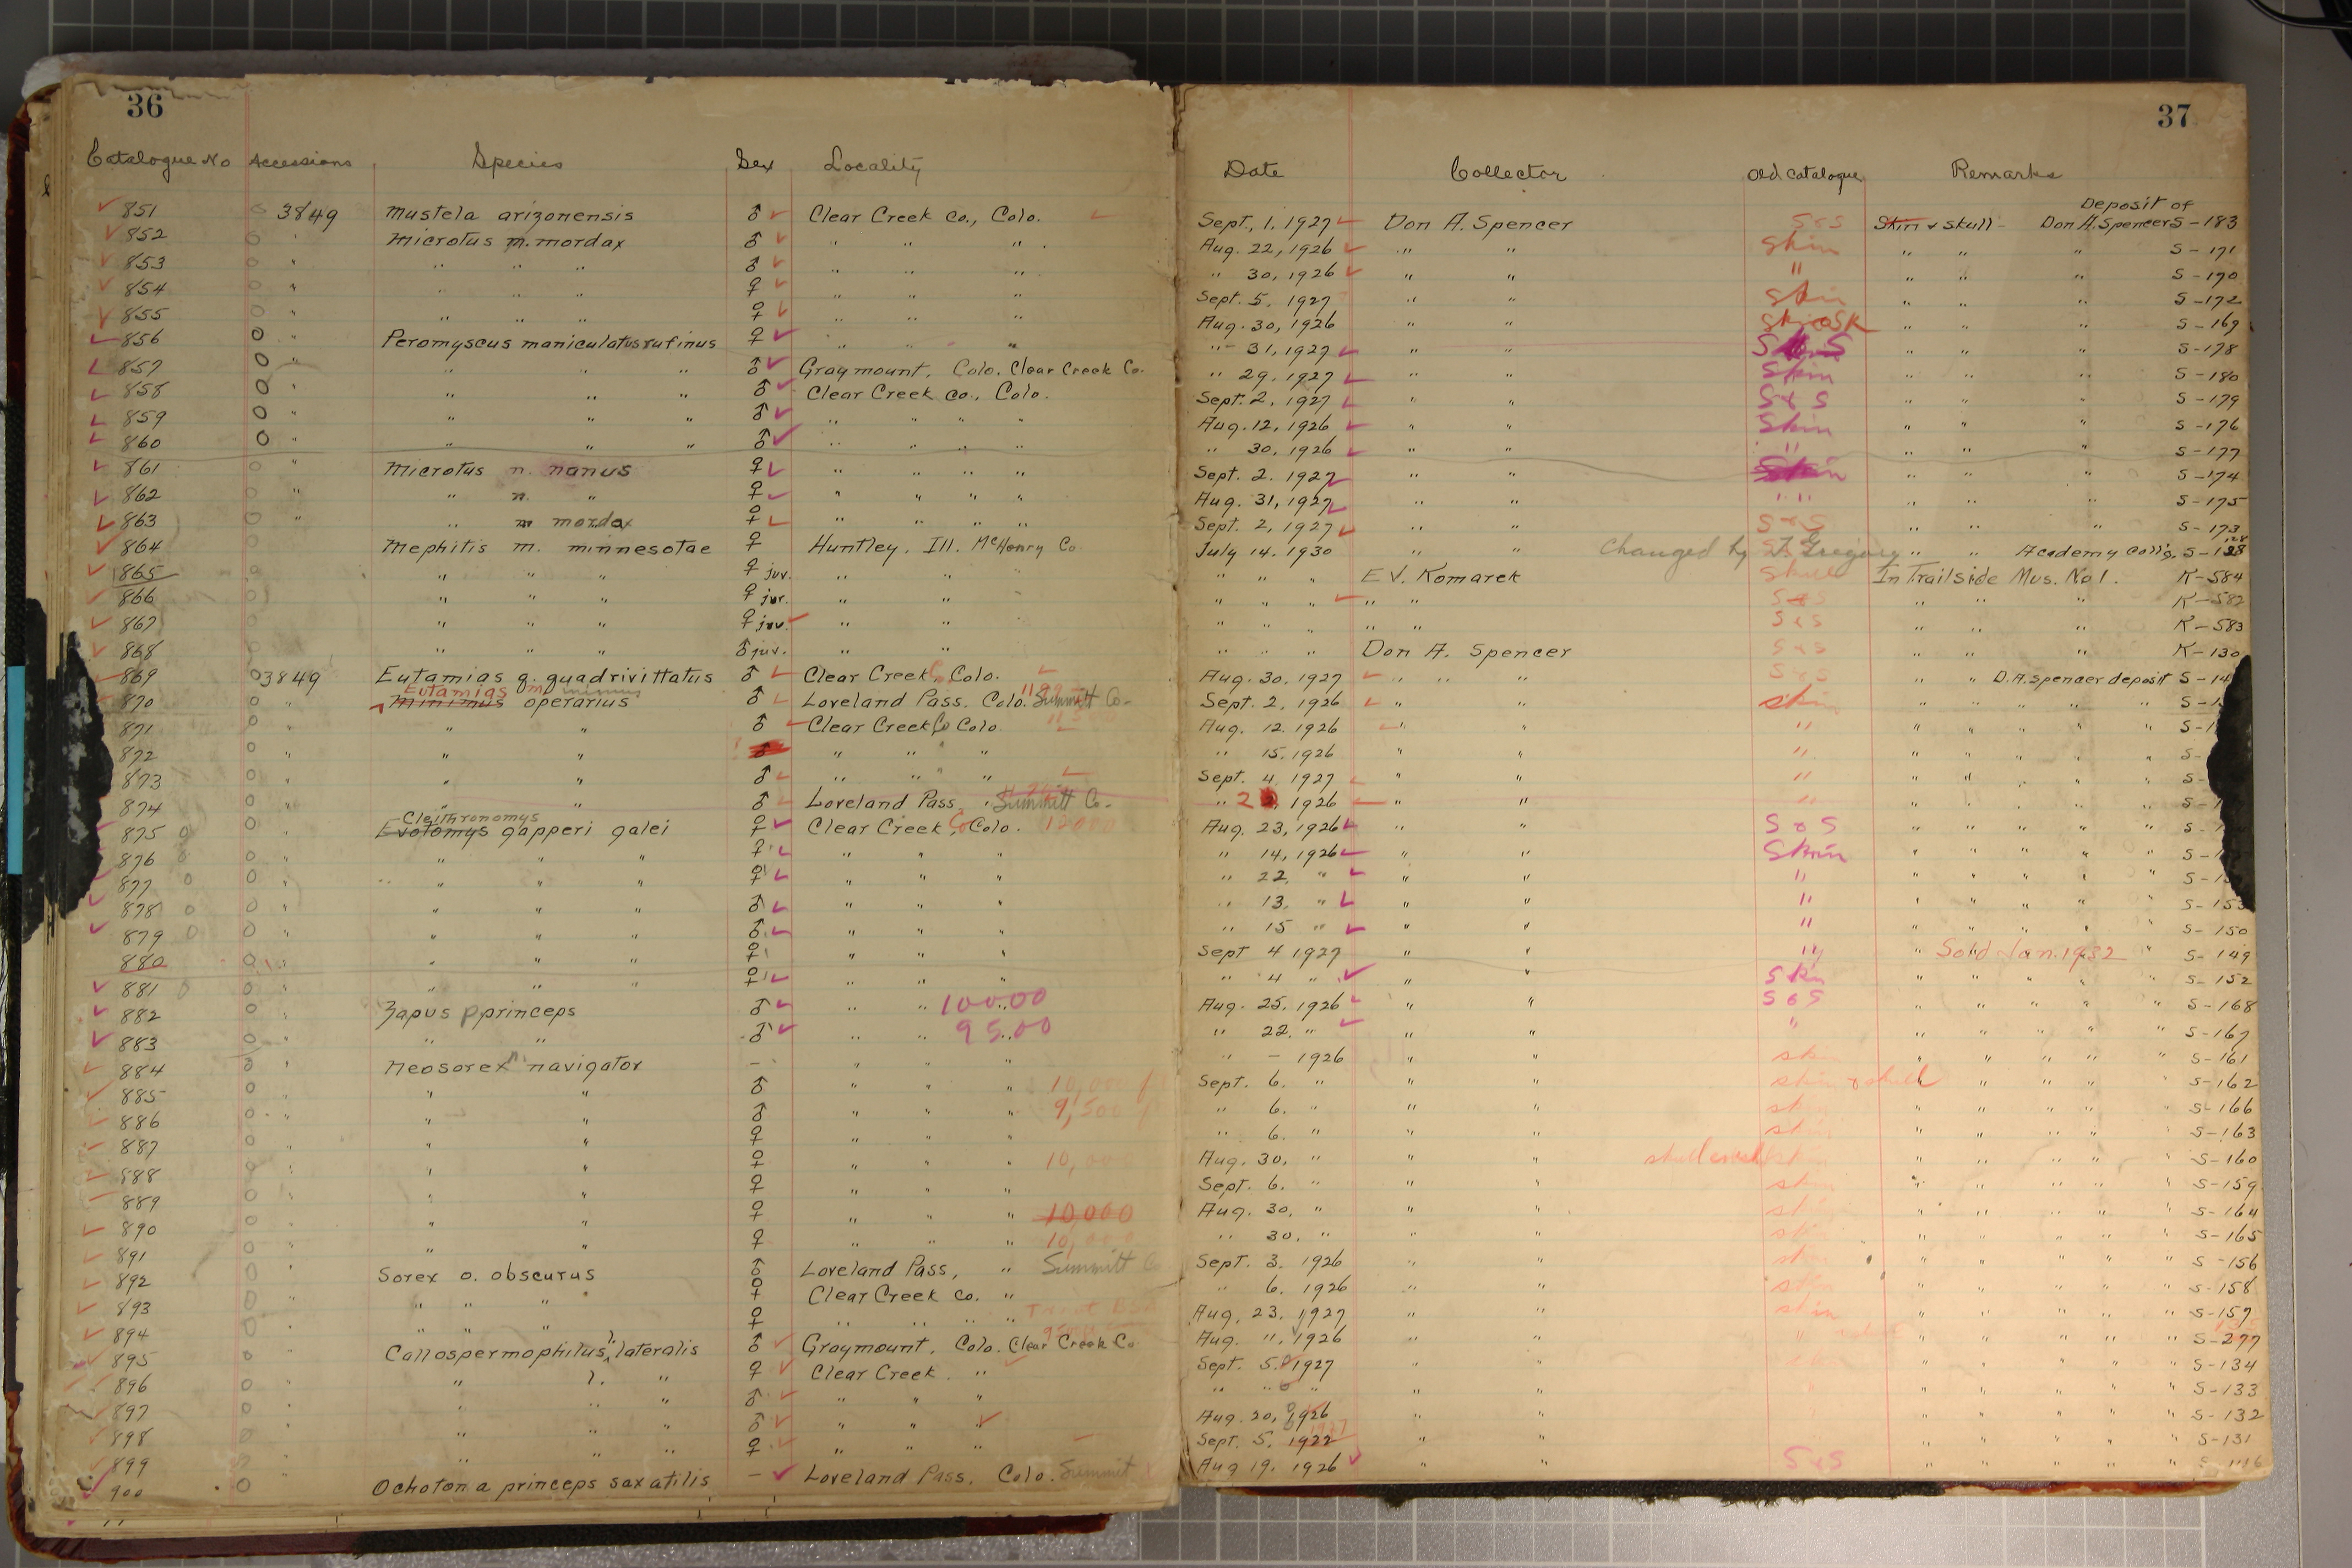 36
Catalogue No Accessions Species Sex Locality
851 3849 Mustela arizonensis ♂ Clear Creek Co., Colo.
852 " Microtus m. mordax ♂ " " "
853 " " " " ♂ " " "
854 " " " " ♀ " " "
855 " " " " ♀ " " "
856 " Peromyscus maniculatus rufinus ♀ " " "
857 " " " " ♂ Graymount, Colo. Clear Creek Co.
858 " " " " ♂ Clear Creek Co., Colo.
859 " " " " ♂ " " " "
860 " " " " ♂ " " " "
861 " Microtus n. nanus ♀ " " " "
862 " " n. " ♀ " " " "
863 " " m mordax ♀ " " " "
864 Mephitis m. minnesotae ♀ Huntley, Ill. McHenry Co.
865 " " " ♀ juv. " "
866 " " " ♀ juv. " "
867 " " " ♀ juv. " "
868 " " " ♂ juv. " "
869 3849 Eutamias q. quadrivittatus ♂ Clear Creek Co. Colo.
Eutamias m minimus
870 " Minimus operarius ♂ Loveland Pass. Colo. Summit Co.
871 " " " ♂ Clear Creek Co Colo.
872 " " " ♂ " " "
873 " " " ♂ " " "
874 " " " ♂ Loveland Pass, " Summitt Co.
Cleithronomys
875 " Evotomys gapperi galei ♀ Clear Creek, Co Colo. 12000
876 " " " " ♀ " " "
877 " " " " ♀ " " "
878 " " " " ♂ " " "
879 " " " " ♂ " " "
880 " " " " ♀ " " "
881 " " " " ♀ " " "
882 " Zapus p princeps ♂ " " " 10000
883 " " " ♂ " " " 9500
884 " Neosorex n. navigator – " " "
885 " " " ♂ " " " 10,000
886 " " " ♂ " " " 9,500
887 " " " ♀ " " "
888 " " " ♀ " " " 10,000
889 " " " ♀ " " "
890 " " " ♀ " " " 10,000
891 " " " ♀ " " " 10,000
892 " Sorex o. obscurus ♂ Loveland Pass, " Summitt Co
893 " " " " ♀ Clear Creek Co. "
894 " " " " ♀ " " " "
895 " Callospermophilus l. lateralis ♂ Graymount, Colo. Clear Creek Co
896 " " l. " ♀ Clear Creek "
897 " " " " ♂ " " "
898 " " " " ♂ " " "
899 " " " " ♀ " " "
900 Ochotona princeps saxatilis – Loveland Pass. Colo. Summit
37
Date Collector Old catalogue Remarks
Deposit of
Sept., 1. 1927 Don A. Spencer S & S Skin & Skull - Don A. Spencer S-183
Aug. 22, 1926 " " Skin " " " S-171
" 30, 1926 " " " " " " S-170
Sept. 5. 1927 " " Skin " " " S-172
Aug. 30, 1926 " " " " " S-169
" 31, 1927 " " " " " S-178
" 29. 1927 " " Skin " " " S-180
Sept. 2, 1927 " " S & S " " " S-179
Aug. 12, 1926 " " Skin " " " S-176
" 30, 1926 " " " " " " S-177
Sept. 2. 1927 " " Skin " " " S-174
Aug. 31, 1927 " " " " " " " S-175
Sept. 2, 1927 " " S & S " " " S-173
July 14. 1930 " " Changed by T. Gregory " " Academy Coll'g. S-128
" " " E V. Komarek Skull In Trailside Mus. No 1. K-584
" " " " " S & S " " " K-582
" " " " " S & S " " " K-583
" " " Don A. Spencer S & S " " " K-130
Aug. 30. 1927 " " " S & S " " D. A. Spencer deposit S-14
Sept. 2, 1926 " " Skin " " " " " S-1
Aug. 12. 1926 " " " " " " " " S-1
" 15. 1926 " " " " " " " " S-
Sept. 4. 1927 " " " " " " " " S-
" 2 1926 " " " " " " " " S-1
Aug. 23, 1926 " " S & S " " " " " S-1
" 14, 1926 " " Skin " " " " " S-1
" 22, " " " " " " " " " S-15
" 13, " " " " " " " " " S-153
" 15 " " " " " " " " " S-150
Sept 4 1927 " " " " Sold Jan. 1932 " S-149
" 4 " " " Skn " " " " " S-152
Aug. 25. 1926 " " S & S " " " " " S-168
" 22. " " " " " " " " " S-167
" – 1926 " " skin " " " " " S-161
Sept. 6. " " " skin & skull " " " " " S-162
" 6. " " " skin " " " " " S-166
" 6. " " " skin " " " " " S-163
Aug. 30, " " " skin " " " " " S-160
Sept. 6. " " " skin " " " " " S-159
Aug. 30, " " " skin " " " " " S-164
" 30, " " " skin " " " " " S-165
Sept. 3. 1926 " " skin " " " " " S-156
" 6. 1926 " " skin " " " " " S-158
Aug, 23. 1927 " " skin " " " " " S-157
Aug. 11, 1926 " " " " " " " " S-277
Sept. 5. 1927 " " " " " " " S-134
" " " " " " " " " " S-133
Aug. 20, 1926 " " " " " " " S-132
Sept. 5. 1922 1927 " " " " " " " S-131
Aug 19. 1926 " " S & S " " " " "